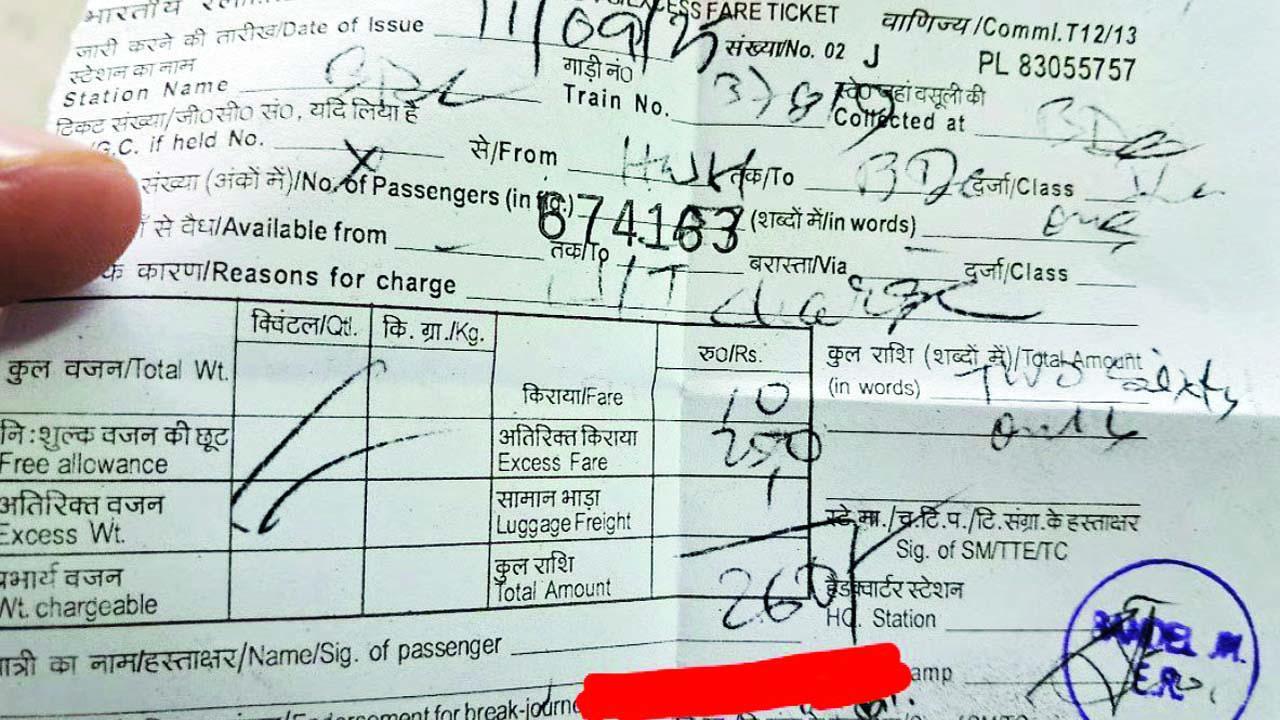 भारतीय EXCESS FARE TICKET वाणिज्य/Comml.T12/13
जारी करने की तारीख/Date of Issue 11/09/25 संख्या/No. 02 J PL 83055757
स्टेशन का नाम
Station Name BDC गाड़ी नं० Train No. जहां वसूली की
Collected at BDC
टिकट संख्या/जी०सी० सं०, यदि लिया है
G.C. if held No. X से/From HWH तक/To BDC दर्जा/Class
संख्या (अंकों में)/No. of Passengers (in fig.) 674163 (शब्दों में/in words) one
से वैध/Available from तक/To बरास्ता/Via दर्जा/Class
के कारण/Reasons for charge W/T charge
क्विंटल/Qtl. कि. ग्रा./Kg. रु०/Rs. कुल राशि (शब्दों में)/Total Amount
कुल वजन/Total Wt. किराया/Fare 10 (in words) Two sixty
only
नि:शुल्क वजन की छूट अतिरिक्त किराया
Free allowance Excess Fare 250
अतिरिक्त वजन सामान भाड़ा
Excess Wt. Luggage Freight स्टे.मा./च.टि.प./टि.संग्रा.के हस्ताक्षर
Sig. of SM/TTE/TC
प्रभार्य वजन कुल राशि
Wt. chargeable Total Amount 260 हैडक्वार्टर स्टेशन
HQ. Station
यात्री का नाम/हस्ताक्षर/Name/Sig. of passenger
BANDEL JN.
E.R.
Endorsement for break-journ